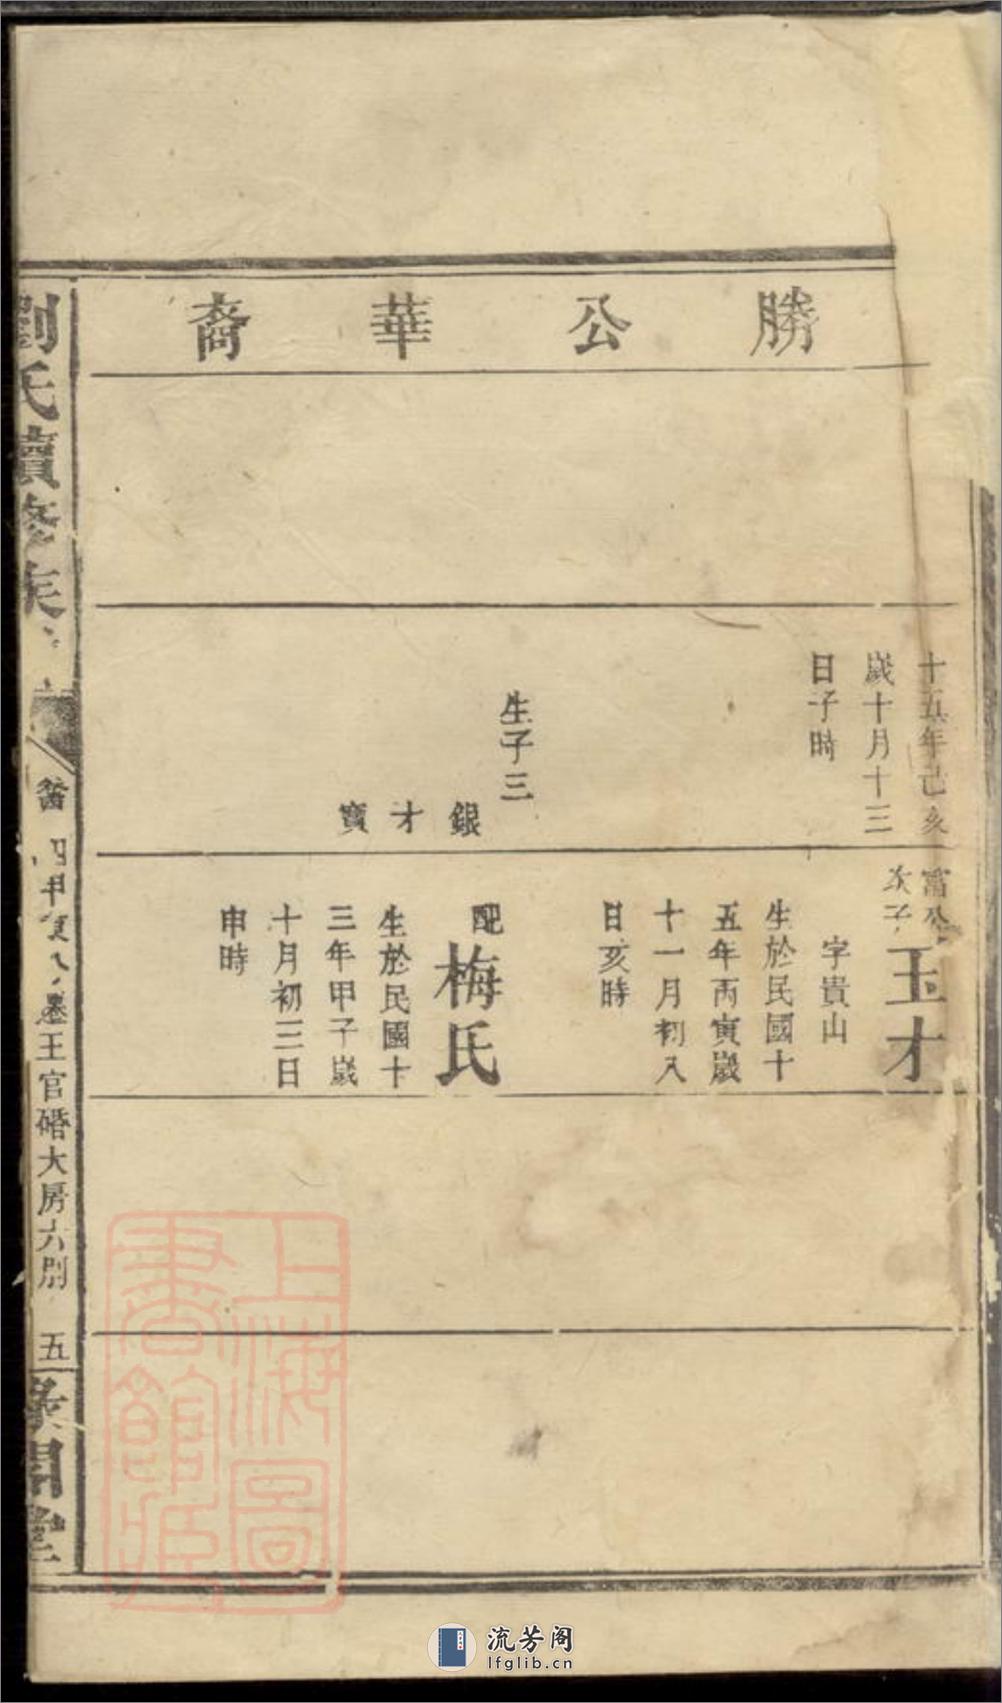 勝公華裔
十五年己亥
歲十月十三
日子時
生子三
銀才寶
富公
次子
玉才
字貴山
生於民國十
五年丙寅歲
十一月初八
日亥時
配
梅氏
生於民國十
三年甲子歲
十月初三日
申時
劉氏續修族
王官碈大房六別
五
上海圖書館藏
流芳阁
lfglib.cn